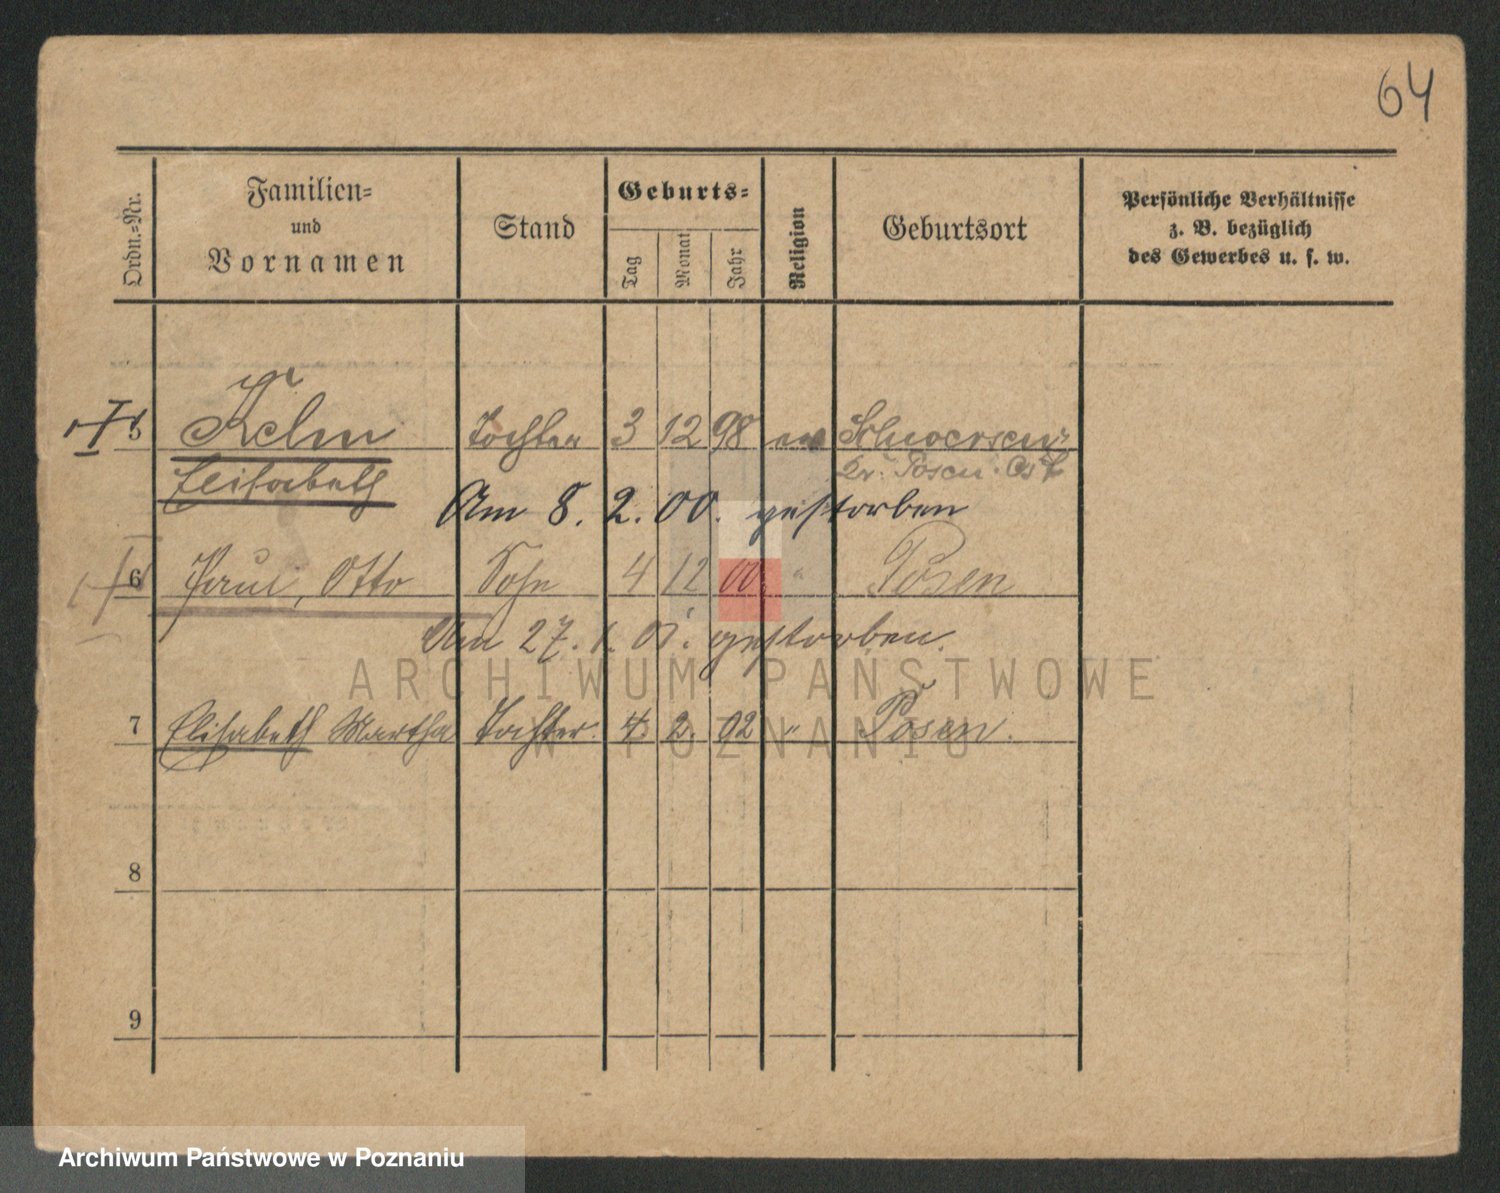 64
Ordn.-Nr.
Familien-
und
Vornamen
Stand
Geburts-
Tag
Monat
Jahr
Religion
Geburtsort
Persönliche Verhältnisse
z. B. bezüglich
des Gewerbes u. s. w.
5 Kelm Tochter 3 12 98 ev Schwersenz
Elisabeth Kr. Posen Ost
Am 8. 2. 00. gestorben
6 Paul, Otto Sohn 4 12 00 " Posen
Am 27. 1. 01. gestorben.
ARCHIWUM PAŃSTWOWE
W POZNANIU
7 Elisabeth Martha Tochter. 4 2. 02 " Posen.
8
9
Archiwum Państwowe w Poznaniu